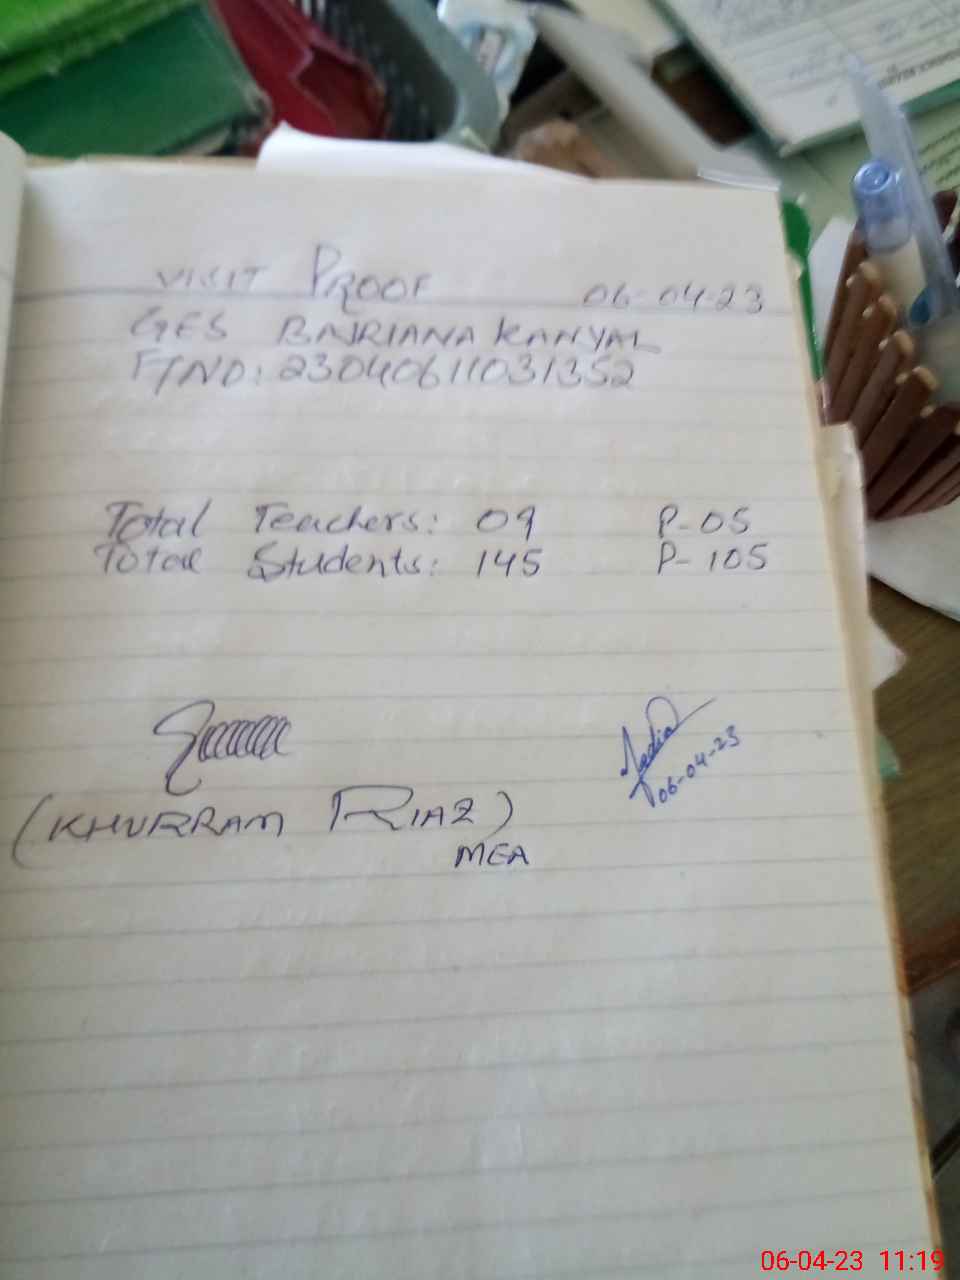 VISIT PROOF 06-04-23
GES BAJRIANA KANYAL
F/NO: 23040611031352
Total Teachers: 09 P-05
Total Students: 145 P-105
(KHURRAM RIAZ)
MEA
Sadia
06-04-23
06-04-23 11:19